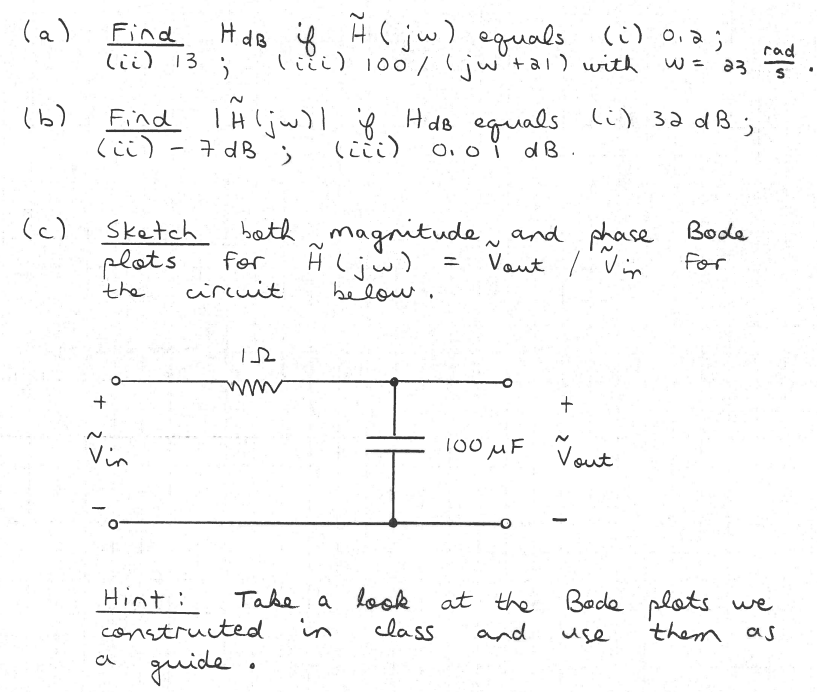 (a) Find H dB if H̃(jω) equals (i) 0.2;
(ii) 13; (iii) 100/(jω+21) with ω = 23 rad/s.
(b) Find |H̃(jω)| if H dB equals (i) 32 dB;
(ii) -7 dB; (iii) 0.01 dB.
(c) Sketch both magnitude and phase Bode
plots for H̃(jω) = Ṽout / Ṽin for
the circuit below.
1Ω
+
+
Ṽin
100 μF
Ṽout
-
-
Hint: Take a look at the Bode plots we
constructed in class and use them as
a guide.